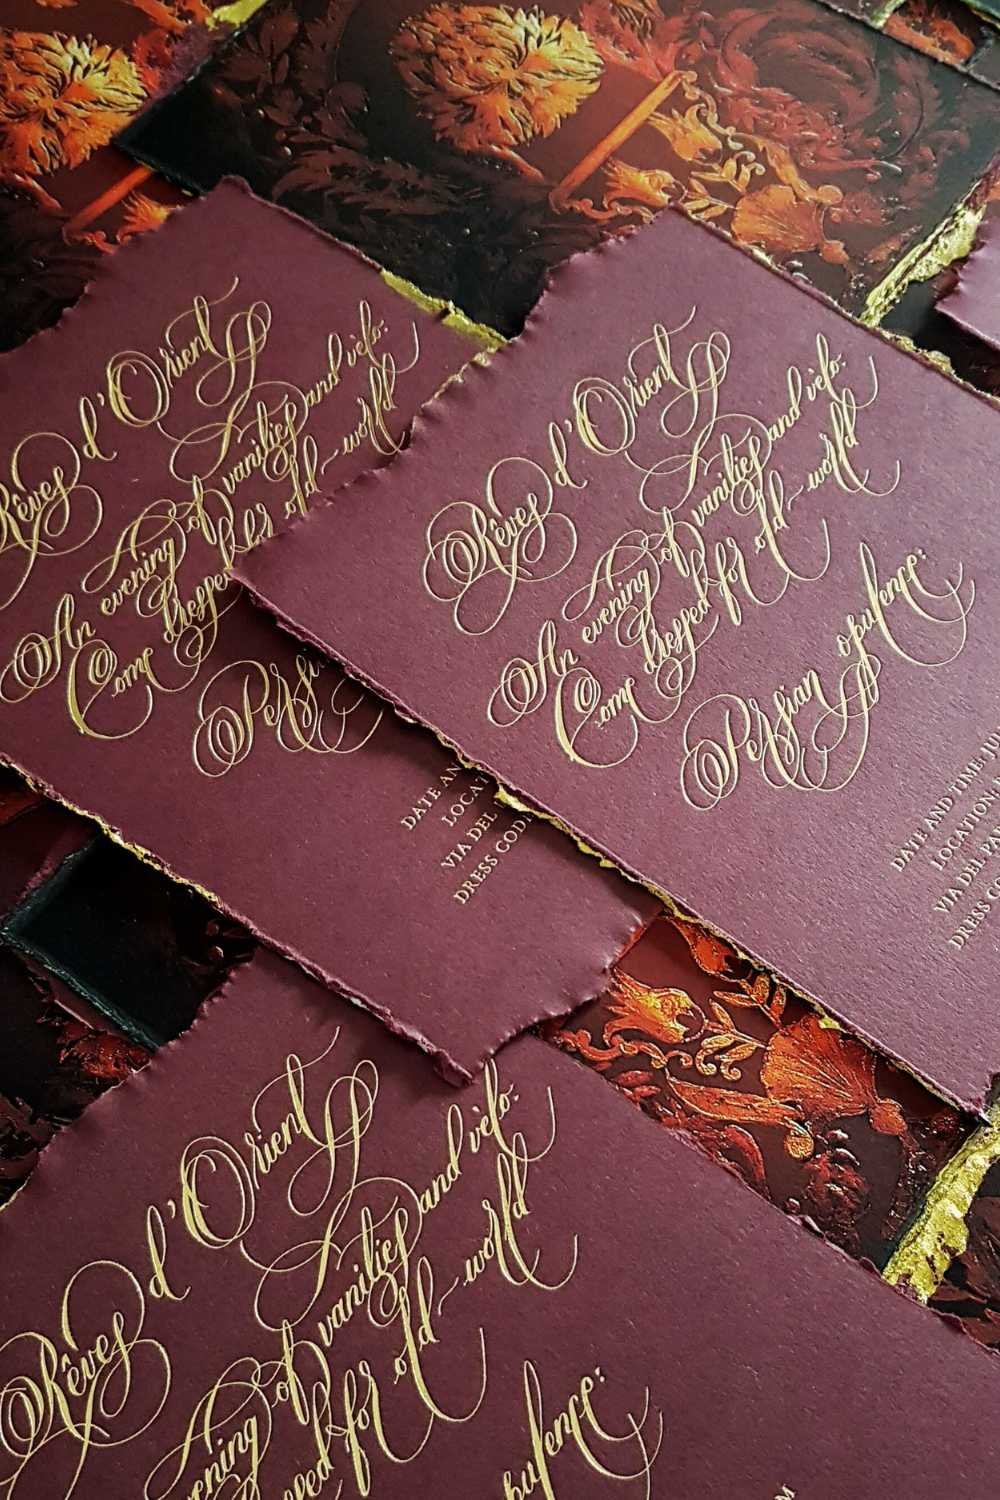 Rêves d'Orient
An evening of vanities and vèlo:
Come dressed old-world
Persi
DATE AN
LOCAT
VIA DEL
DRESS COD
Rêves d'Orient
An evening of vanities and vèlo:
Come dressed for old-world
Persian opulence:
DATE AND TIME: JU
LOCATION:
VIA DEL PA
DRESS CO
Rêves d'Orient
evening of vanities and vèlo:
ssed for old-world
pulence: